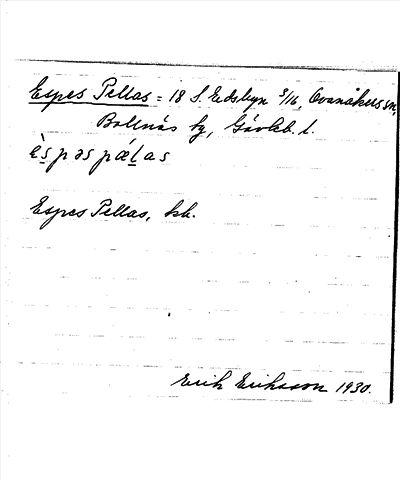 Espes Pellas = 18 S. Edsbyn 3/16, Ovanåkers sn,
Bollnäs tg, Gävleb. l.
è̀s̱pəs pæ̀ḻas
Espes Pellas, kb.
Erik Eriksson 1930.